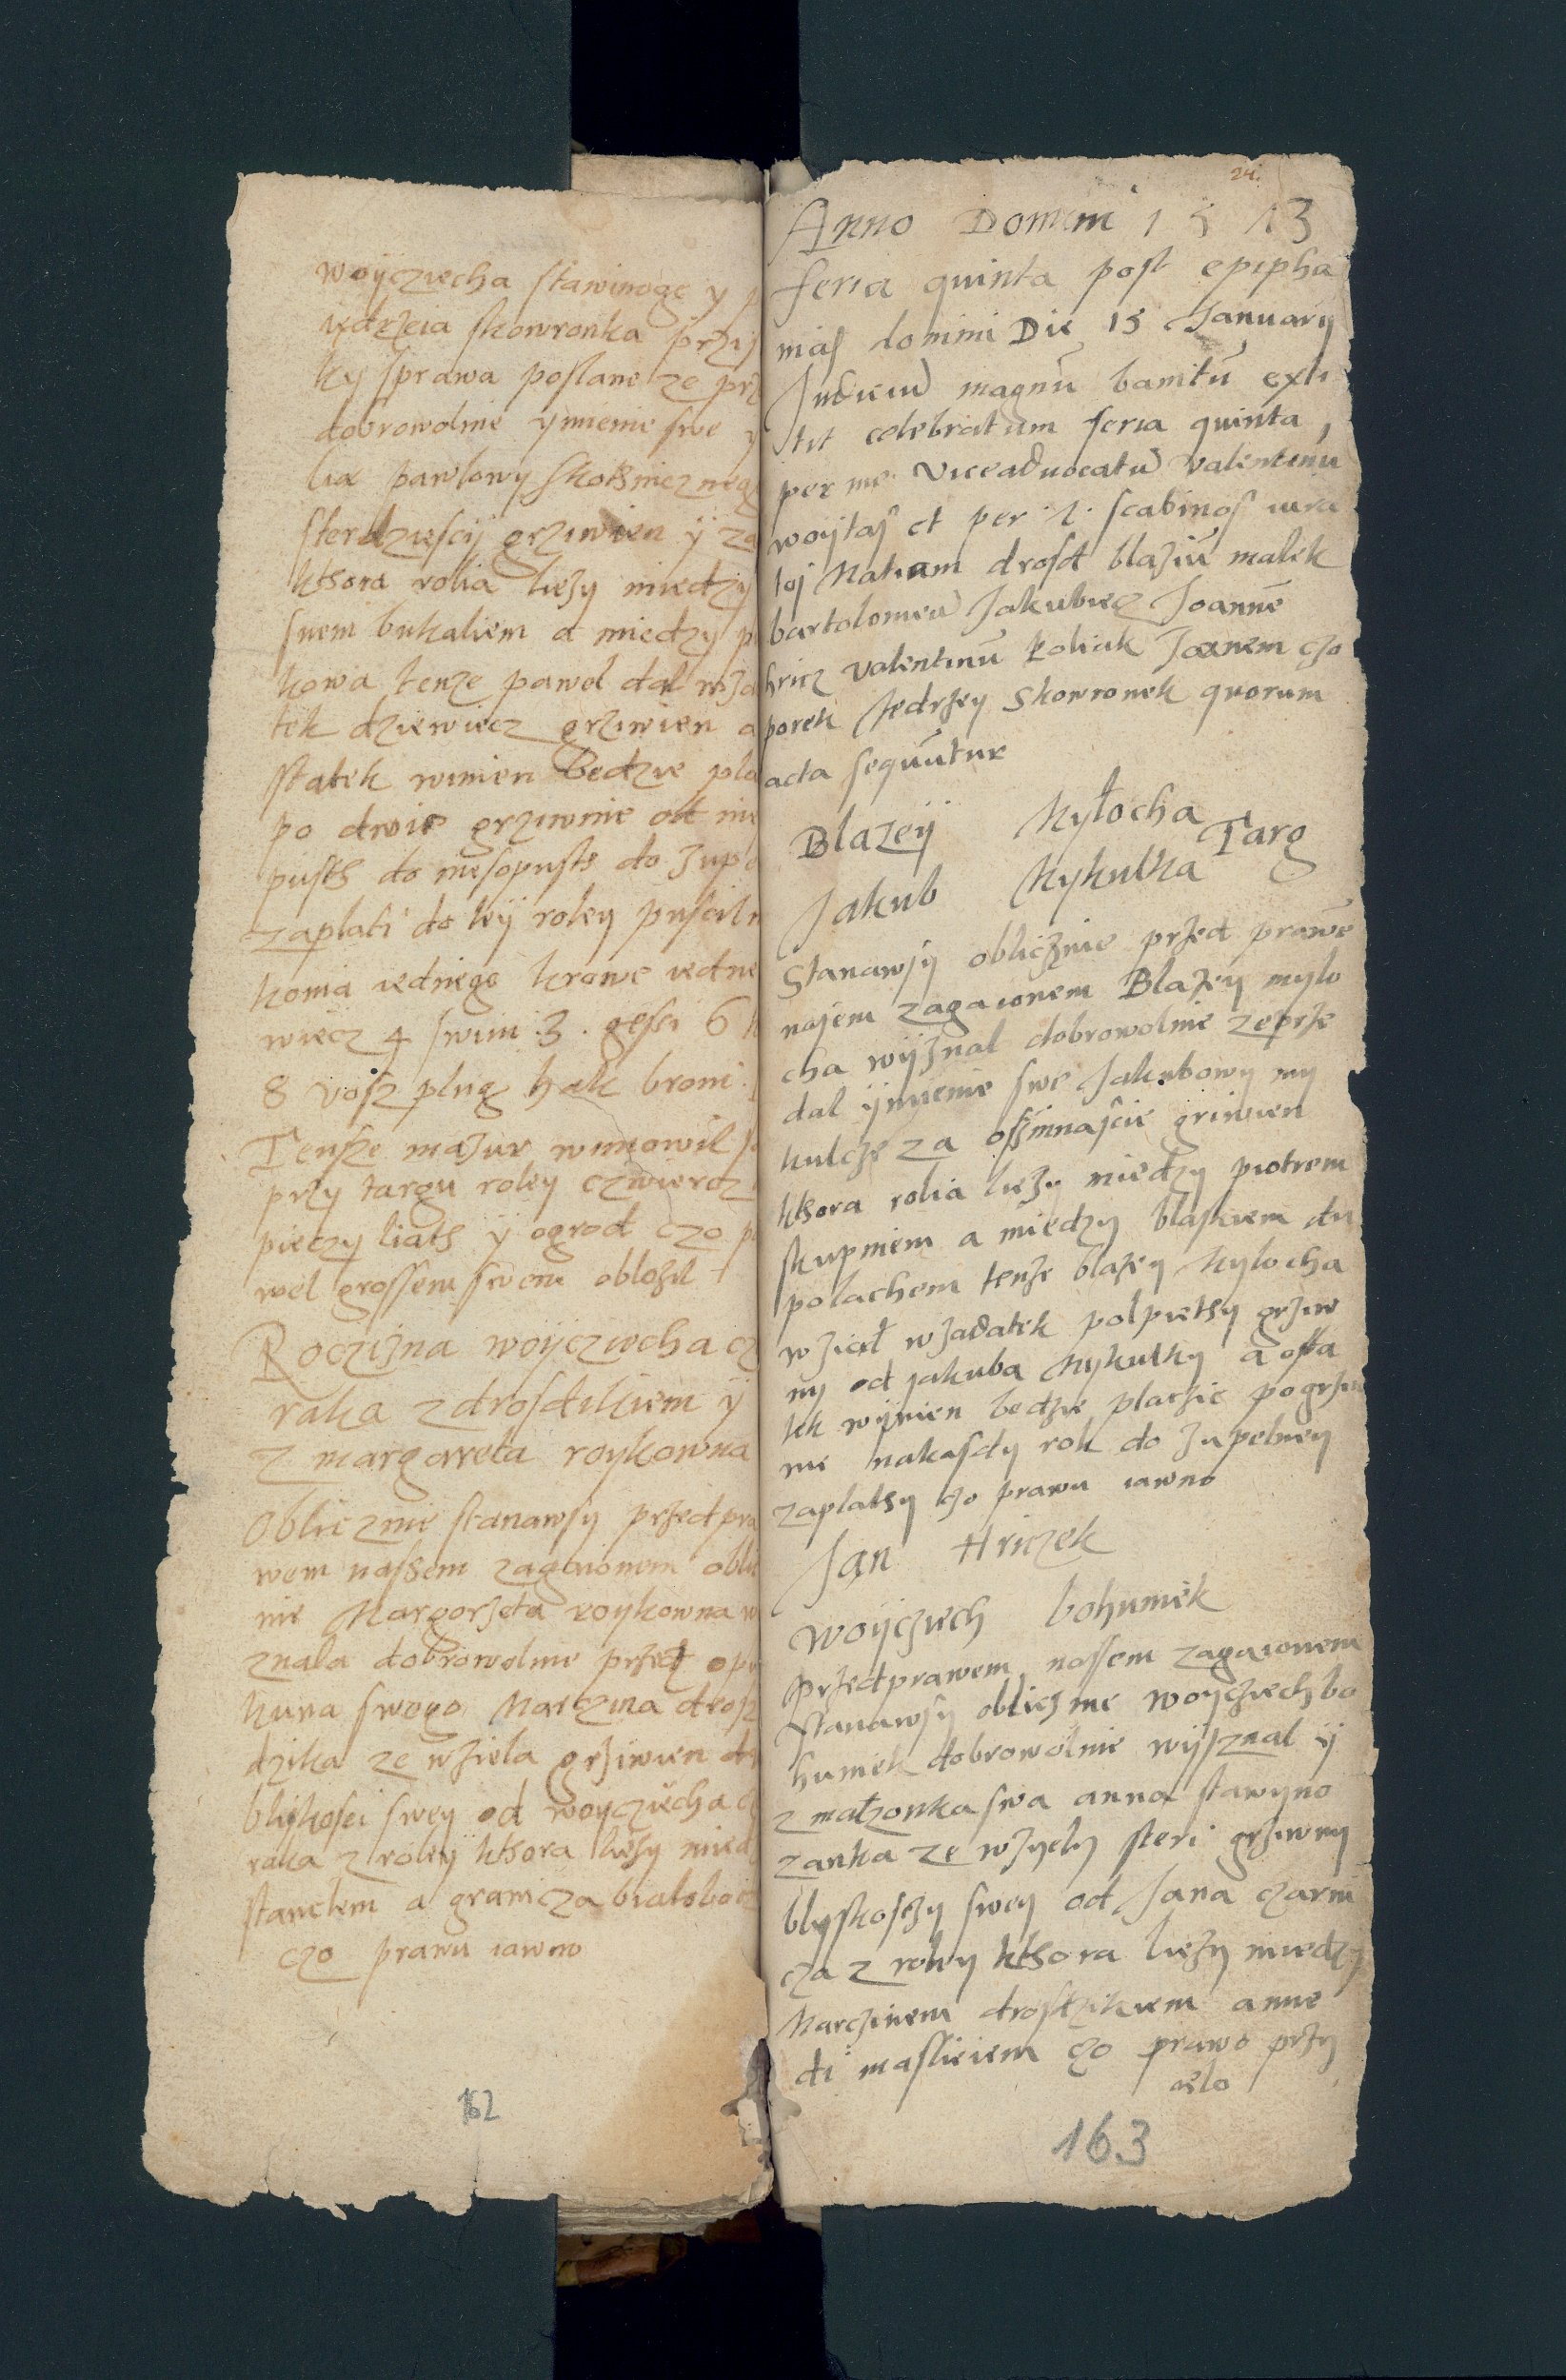 woÿcziecha stawinoge y p
iędrzeia skowronka przij
ky sprawa postane ze prz
dobrowolnie ymienie swe y
lia pawlowy skotniczneg
sterdziescÿ grziwien ÿ za
kthora rolia liezy miedzy
suem bukaliem a miedzy p
kowa tenze pawel dal wza
tek dziewiecz grziwien a
statek winien Bedzie pla
po dwie grziwnie od mie
pusth do miesopusth do zupe
zaplati do teÿ roley pusciln
konia iednego krowe iedne
wiecz 4 swini .3. gessi 6 k
8 vosz plug hak broni
Tensze mazur wimowil s
przy targu roley czwiercz
pieczy liath ÿ ogrod czo p
wel grossem swem oblozil
Roczizna woÿcziecha cz
raka z drosdzikiem ÿ
z margarreta roykowna
Oblicznie stanawsy przed pra
wem nassem zagaionem oblic
nie Margorzeta roykowna w
znala dobrowolnie przed opie
kuna swego Marczina drosz
dzika ze wziela grziwien d
bliskosci swey od woycziecha c
raka z roleÿ kthora liezy mied
stanclem a granicza bialoboc
czo prawu iawno
162
24.
Anno Domini 1 5 13
feria quinta post epipha
nias domini Die 15 Januarÿ
Judiciũ magnũ banitũ exti
tit celebratum feria quinta,
per me viceadvocatũ valentinũ
woÿtas et per .7. scabinos iura
tos Matiam drosd blaziũ malek
bartolomeũ Jakubiecz Joannẽ
hricz valentinũ koliuk Joanem czo
porek Jedrzey Skowronek quorum
acta sequũtur
Blazeÿ Myłocha
Targ
Jakub Mykulka
Stanawsÿ oblicznie przed prawẽ
naszem zagaionem Blazey mylo
cha wÿznal dobrowolnie ze prze
dal ÿmienie swe Jakubowy my
kulcze za osiminascie griwien
kthora rolia liezy miedzy piotrem
skupniem a miedzy blaskiem du
polachem tenze blazey Mylocha
wziął wzadatek polpiethy grziw
ny od jakuba Mykulky a osta
tek wÿnien bedzie placzic pogrziw
nie nakasdy rok do zupelney
zaplathy czo prawu iawno
Jan Hriczek
Woÿcziech bohumek
Przed prawem nassem zagaionem
stanawsÿ oblicznie woycziech bo
humek dobrowolnie wÿsznal ÿ
z małzonka swa anna stawyno
zanka ze wzyely steri grziwny
blyskosczy swey od Jana czarni
cza z roley kthora liezy miedzy
Marczinem drosdzikiem amie
di maslieiem czo prawo przy
ięlo
163